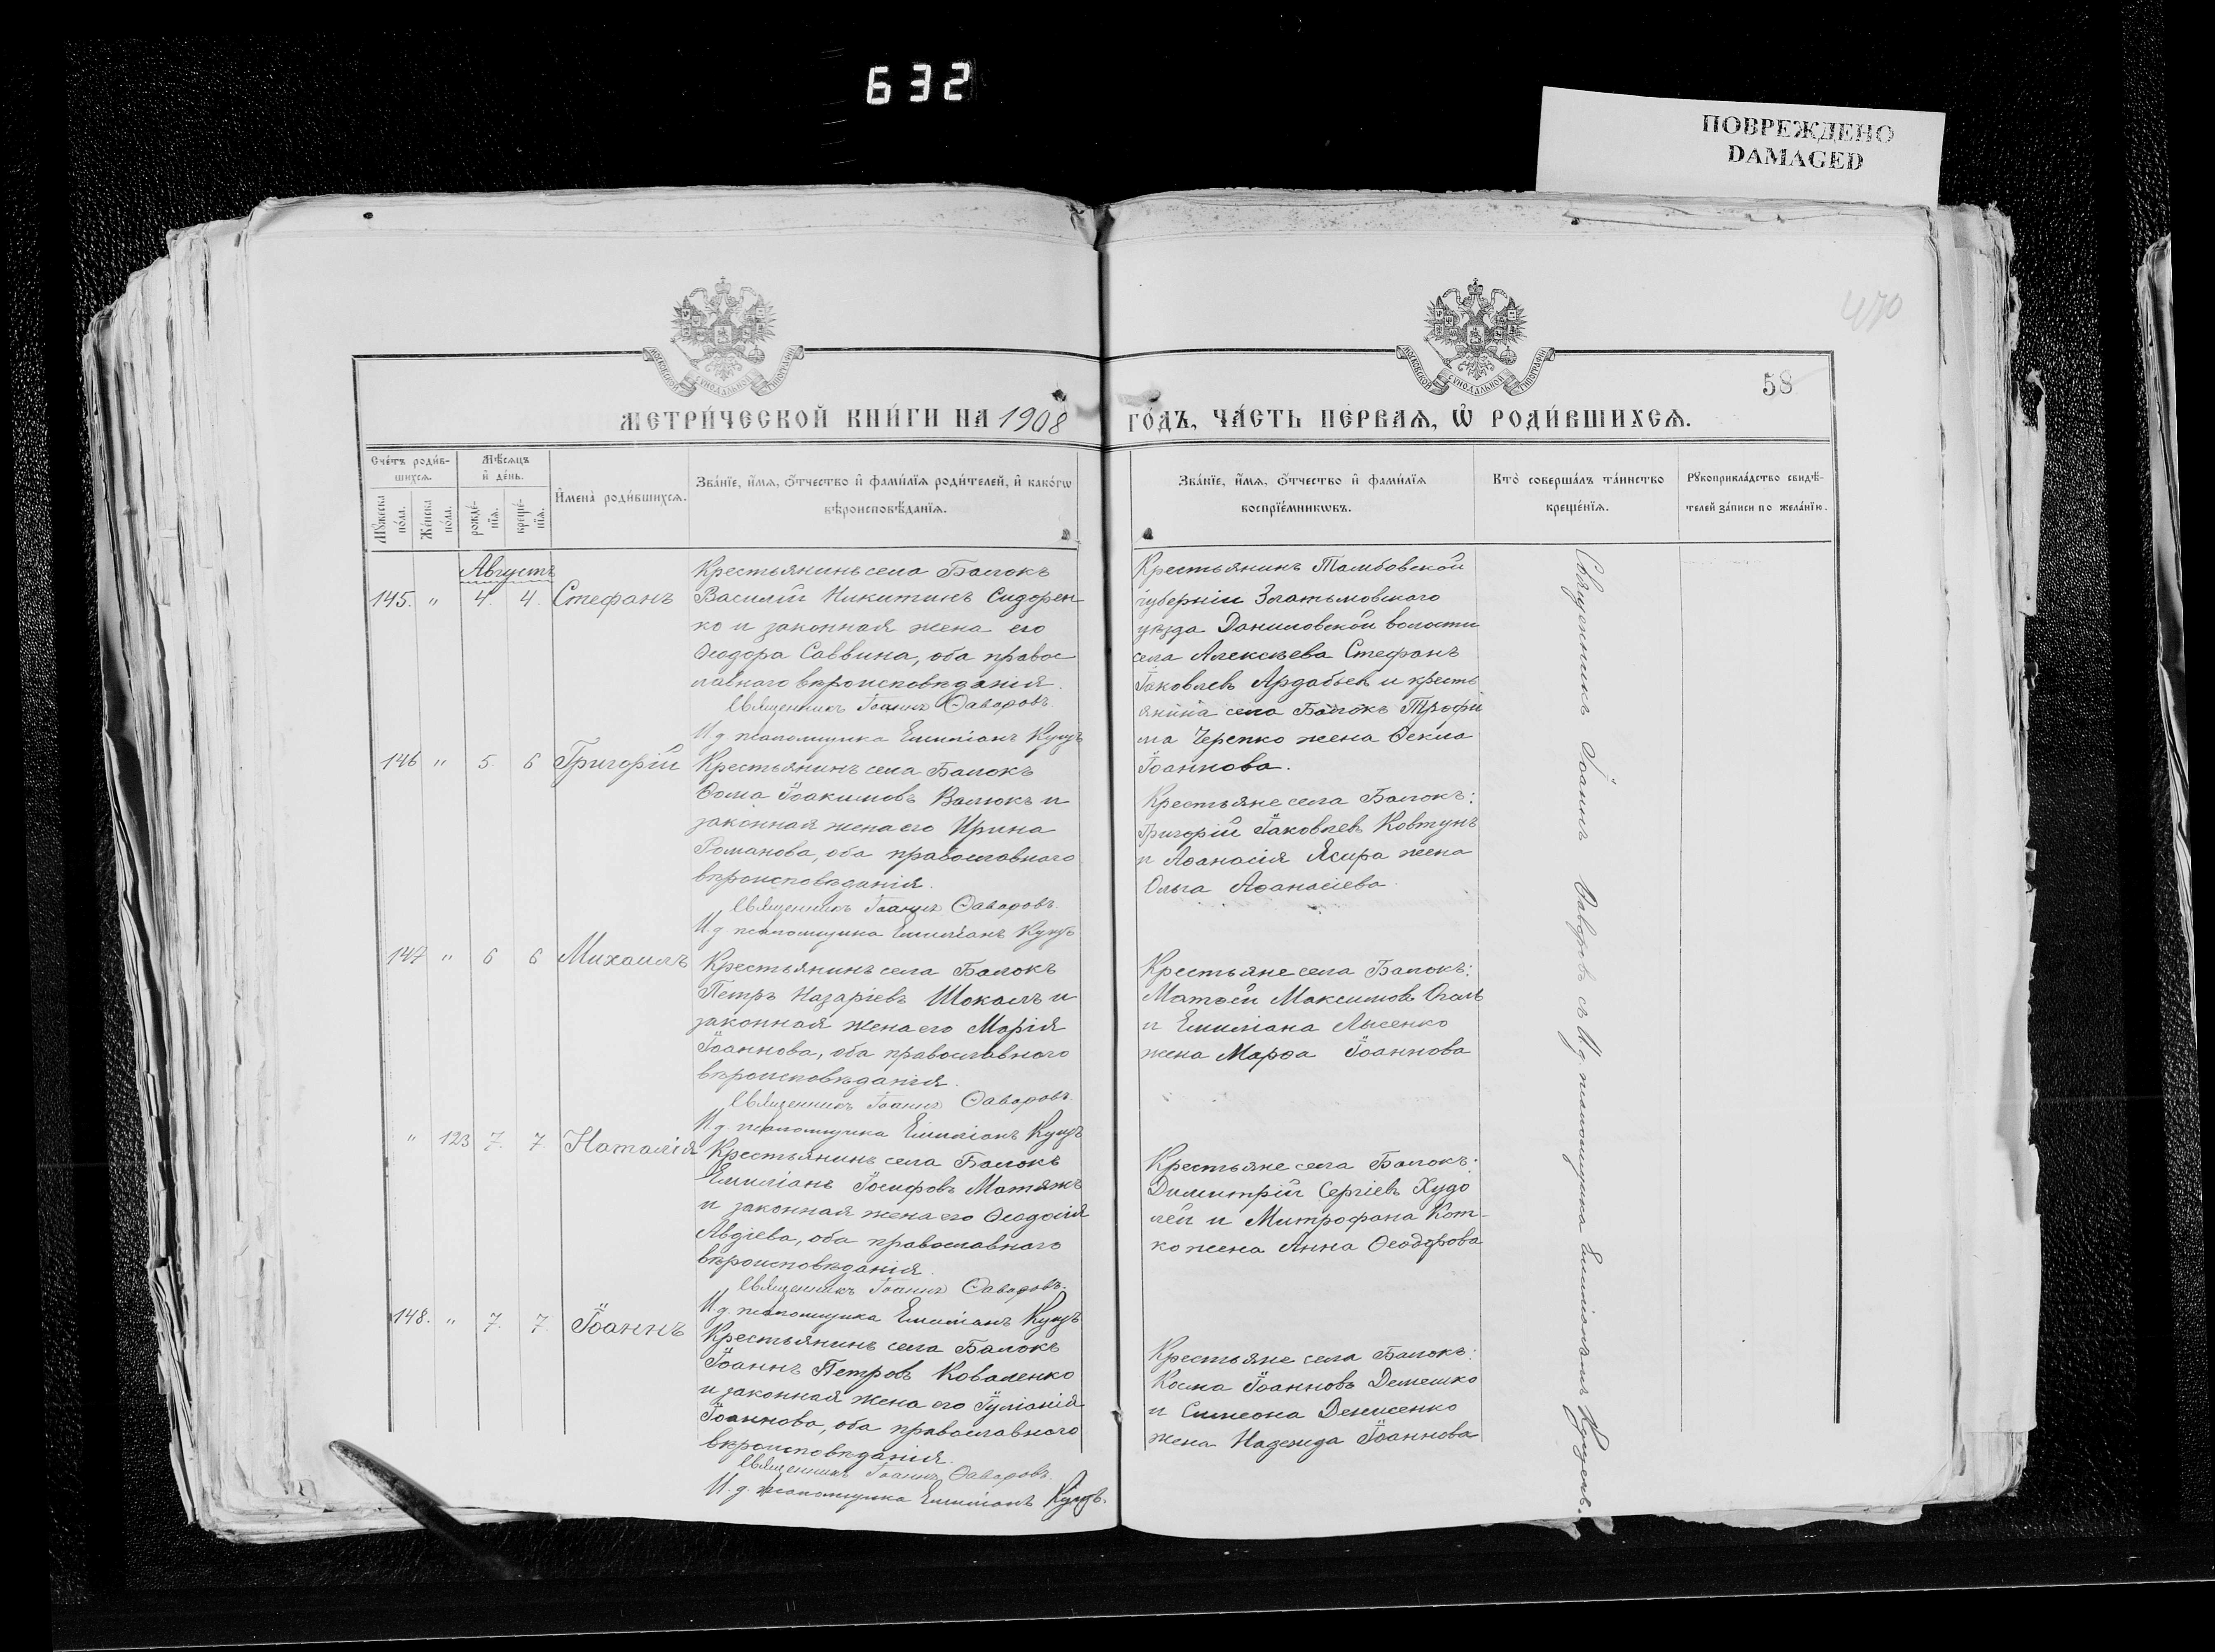 632
ПОВРЕЖДЕНО
DAMAGED
470
58
МОСКОВСКОЙ СУНОДАЛЬНОЙ ТИПОГРАФІИ
МОСКОВСКОЙ СУНОДАЛЬНОЙ ТИПОГРАФІИ
МЕТРИ́ЧЕСКОЙ КНИ́ГИ НА 1908 ГО́ДЪ, ЧА́СТЬ ПЕ́РВАѦ, Ѽ РОДИ́ВШИХСѦ.
Сче́тъ роди́в-
шихсѧ.
Мѣ́сѧцъ
и҆ де́нь.
Мꙋ́жеска по́ла.
Же́нска по́ла.
рожде́-
нїѧ.
креще́-
нїѧ.
И҆мена̀ роди́вшихсѧ.
Зва́нїе, и҆́мѧ, ѻ҆́тчество и҆ фами́лїѧ роди́телей, и҆ како́гѡ
вѣроисповѣ́данїѧ.
Зва́нїе, и҆́мѧ, ѻ҆́тчество и҆ фами́лїѧ
воспрїе́мникѡвъ.
Кто̀ соверша́лъ та́инство
креще́нїѧ.
Рꙋкоприкла́дство свидѣ́-
телей за́писи по жела́нїю.
Августъ
145. " 4. 4. Стефанъ
Крестьянинъ села Балокъ
Василій Никитинъ Сидорен
ко и законная жена его
Ѳеодора Саввина, оба правос
лавнаго вѣроисповѣданія.
Священникъ Іоаннъ Ѳаворовъ.
И.д. псаломщика Емиліанъ Куцъ
Крестьянинъ Тамбовской
губерніи
уѣзда Даниловской волости
села Алексѣева Стефанъ
Іаковлевъ Ардабьев и кресть
янина села Балокъ Трофи
ма Черепко жена Ѳекла
Іоаннова.
146 " 5. 6 Григорій
Крестьянинъ села Балокъ
Ѳома Іоакимовъ Валюкъ и
законная жена его Ирина
Романова, оба православнаго
вѣроисповѣданія.
Священникъ Іоаннъ Ѳаворовъ.
И.д псаломщика Емиліанъ Куцъ
Крестьяне села Балокъ:
Григорій Іаковлевъ Ковтунъ
и Аѳанасія Ясира жена
Ольга Аѳанасіева.
147 " 6 6 Михаилъ
Крестьянинъ села Балокъ
Петръ Назаріевъ Шокалъ и
законная жена его Марія
Іоаннова, оба православнаго
вѣроисповѣданія.
Священникъ Іоаннъ Ѳаворовъ
И.д. псаломщика Емиліанъ Куцъ
Крестьяне села Балокъ:
Матѳей Максимовъ
и Емиліана Лысенко
жена Марѳа Іоаннова
" 123 7. 7 Наталія
Крестьянинъ села Балокъ
Емиліанъ Іосифовъ Матяжъ
и законная жена его Ѳеодосія
Авдіева, оба православнаго
вѣроисповѣданія.
Священникъ Іоаннъ Ѳаворовъ.
И.д. псаломщика Емиліанъ Куцъ
Крестьяне села Балокъ:
Димитрій Сергіевъ Худо
лей и Митрофана Кот-
ко жена Анна Ѳеодорова
148. " 7. 7. Іоаннъ
Крестьянинъ села Балокъ
Іоаннъ Петровъ Коваленко
и законная жена его Іуліанія
Іоаннова, оба православнаго
вѣроисповѣданія.
Священникъ Іоаннъ Ѳаворовъ.
И.д. псаломщика Емиліанъ Куцъ.
Крестьяне села Балокъ:
Косма Іоанновъ Демешко
и Симеона Денисенко
жена Надежда Іоаннова
Священникъ Іоаннъ Ѳаворовъ съ И.д. псаломщика Емиліаномъ Куцемъ.